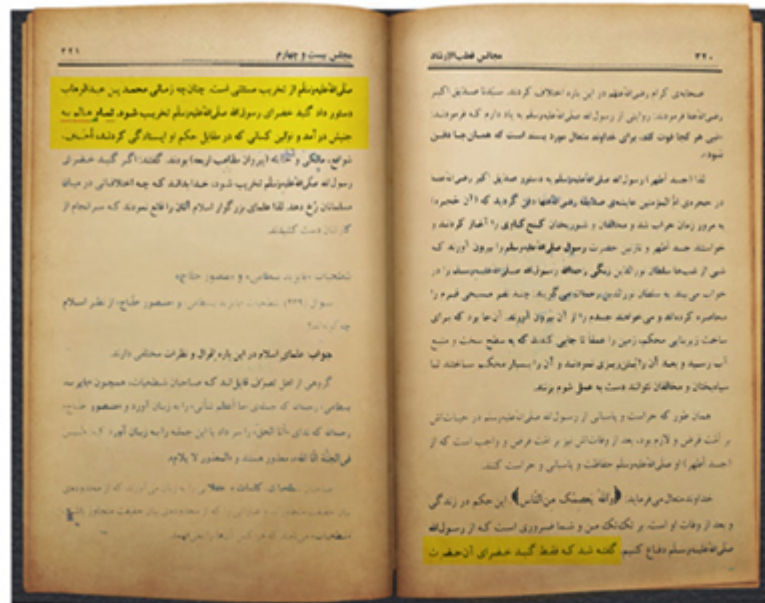 ۲۲۰
مجالس قطب‌الارشاد
صحابه‌ی کرام رضی‌الله‌عنهم در این باره اختلاف کردند. سیدنا صدیق اکبر
رضی‌الله‌عنه فرمودند: روایتی از رسول‌الله صلی‌الله‌علیه‌وسلم به یاد دارم که فرمودند:
«نبی هر کجا فوت کند، برای خداوند متعال مورد پسند است که همان‌جا دفن
شود».
لذا (جسد اطهر) رسول‌الله صلی‌الله‌علیه‌وسلم به دستور صدیق اکبر رضی‌الله‌عنه
در حجره‌ی ام‌ّ المؤمنین عایشه‌ی صدّیقه رضی‌الله‌عنها دفن گردید که (آن حجره)
به مرور زمان خراب شد و مخالفان و شوربختان کنج‌کاوی را آغاز کردند و
خواستند جسد اطهر و نازنین حضرت رسول صلی‌الله‌علیه‌وسلم را بیرون آورند که
شبی از شب‌ها سلطان نورالدین زنگی رحمه‌الله رسول‌الله صلی‌الله‌علیه‌وسلم را در
خواب می‌بیند. به سلطان نورالدین رحمه‌الله می‌گویند: چند نفر مسیحی قبرم را
محاصره کرده‌اند و می‌خواهند جسدم را از آن بیرون آورند. آن‌جا بود که برای
ساخت زیربنایی محکم، زمین را عمقاً تا جایی کندند که به سطح سخت و منبع
آب رسید و بعد آن را بتن‌ریزی نمودند و آن را بسیار محکم ساختند تا
سیاه‌بختان و مخالفان نتوانند دست به عمل شوم بزنند.
همان طور که حراست و پاسبانی از رسول‌الله صلی‌الله‌علیه‌وسلم در حیات‌اش
بر امّت فرض و لازم بود، بعد از وفات‌اش نیز بر امّت فرض و واجب است که از
(جسد اطهر) او صلی‌الله‌علیه‌وسلم حفاظت و پاسبانی و حراست کنند.
خداوند متعال می‌فرماید: ﴿وَاللهُ يَعْصِمُكَ مِنَ النَّاسِ﴾، این حکم در زندگی
و بعد از وفات او است. بر تک‌تک من و شما ضروری است که از رسول‌الله
صلی‌الله‌علیه‌وسلم دفاع کنیم. گفته شد که فقط گنبد خضرای آن‌حضرت
مجلس بیست و چهارم
۲۲۱
صلی‌الله‌علیه‌وسلم از تخریب مستثنی است. چنان‌چه زمانی محمد بن عبدالوهاب
دستور داد گنبد خضرای رسول‌الله صلی‌الله‌علیه‌وسلم تخریب شود. تمام عالم به
جنبش در آمد و اولین کسانی که در مقابل حکم او ایستادگی کردند، احناف،
شوافع، مالکی و حنابله (پیروان مذاهب اربعه) بودند. گفتند: اگر گنبد خضرای
رسول‌الله صلی‌الله‌علیه‌وسلم تخریب شود، خدا بداند که چه اختلافاتی در میان
مسلمانان رخ دهد. لذا علمای بزرگوار اسلام آنان را قانع نمودند که سرانجام از
کارشان دست کشیدند.
شطحیات «بایزید بسطامی» و «منصور حلاج»
سوال (۲۳۹): شطحیات بایزید بسطامی و «منصور حلاج» از نظر اسلام
چه
جواب: علمای اسلام در این باره اقوال و نظرات مختلفی دارند.
گروهی از اهل تصوّف قایل‌اند که صاحبان شطحیات، همچون بایزید
بسطامی رحمه‌الله که جمله‌ی «ما أعظم شأنی» را به زبان آورد و «منصور حلاج»
رحمه‌الله که ندای «أنا الحق» را سر داد یا این جمله را به زبان آورد که «لیس
فی الجبّة الّا الله»، معذور هستند و «المعذور لا یلام».
شطحیات، کلمات را به زبان می‌آورند که از محدوده‌ی